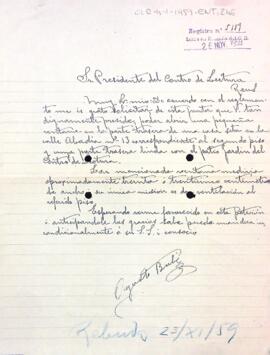 Sr. Presidente del Centro de Lectura
Reus
Muy Sr. mio: De acuerdo con el reglamen-
to me es grato solicitar de esta junta que V. tan
dignamente preside, poder abrir una pequeña
ventana en la parte trasera de una casa sita en la
calle Abadia nº 13 correspondiente al segundo piso
y cuya parte trasera linda con el patio jardin del
Centro de Lectura.
Las mencionada ventana mediría
aproximadamente treinta o treinta centimetros
de ancho, su única mision es de ventilación al
referido piso.
Esperando verme favorecido en esta petición
i anticipandole las gracias sabe puede mandar in-
condicionalmente á su S.S. i consocio
Agusto
Rebut 23/XI/59